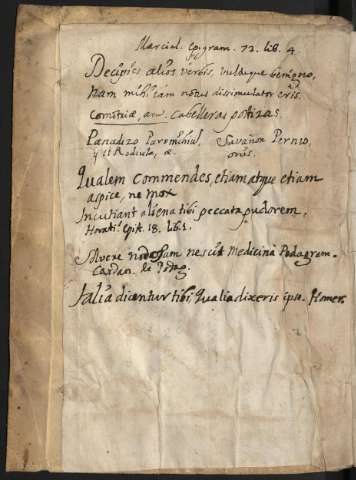 Marcial. epigram. 72. lib. 4.
Decipies alios verbis, vultuque benigno,
Nam mihi iam notus dissimulator eris.
Comitriae, an. Cabelleras postizas.
Panadizo Paromichiul, Savañon Pernio,
onis.
Qualem commendes, etiam atque etiam
aspice, ne mox
Incutiant aliena tibi peccata pudorem,
Horati. epist. 18. lib. 1.
Solvere nodosam nescit medicina Podagram.
Cardan. de Podag.
Talia dicentur tibi, qualia dixeris ipse. Homer.